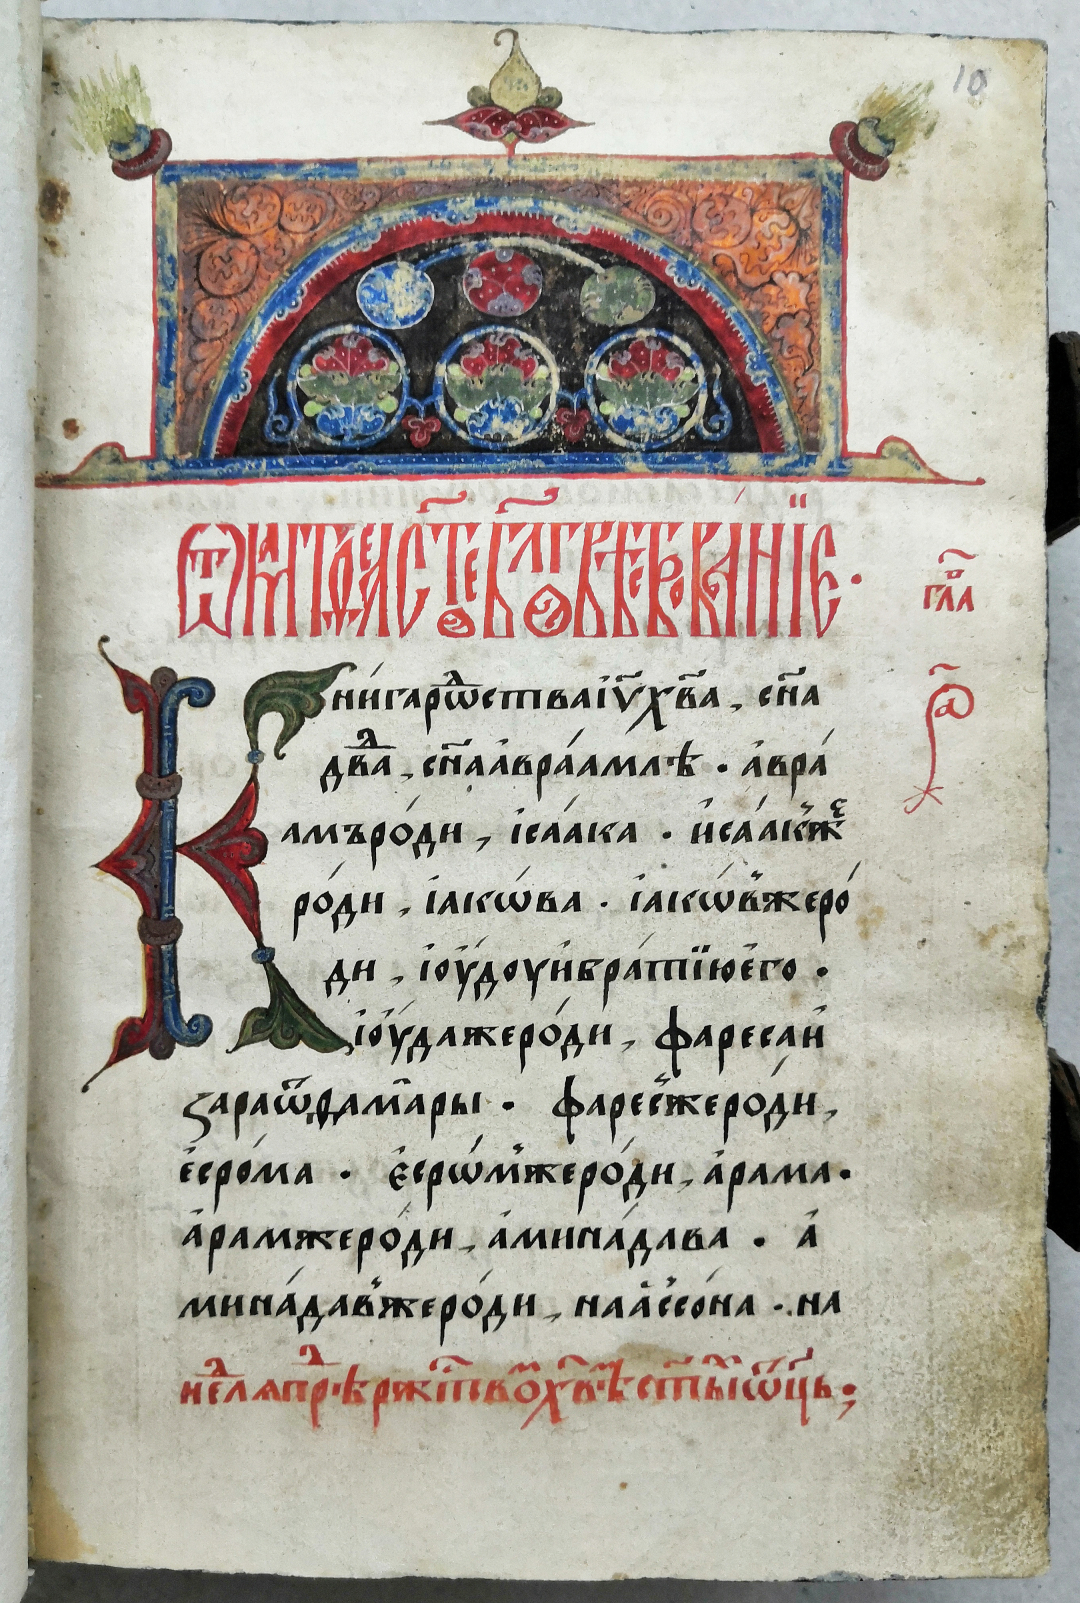 10
ѿ маѳеа ст҃ое бл҃говѣствованїе .
гла҃
а҃
Кни́га рѿства і҆у҃ х҃ва , сн҃а
дв҃два , сн҃а а҆враа́млѣ . а҆вра́
амъ ро́ди , і҆саа́ка . и҆саа́к же
ро́ди , і҆ако́ва . і҆акѡ́в же ро́
ди , і҆оу́доу и҆ бра́тїю є҆го .
і҆оу́да же ро́ди , фареса и҆
зара ѿ ѳамары . фарес же ро́ди ,
є҆сро́ма . є҆срѡ́м же ро́ди , а҆рама .
а҆рам же ро́ди , а҆мина́дава . а҆
мина́дав же ро́ди , наа҆ссо́на . на
недлѧ прѣ ржⷭ҇твом х҃вѣм ст҃ы ѿц҃ь :